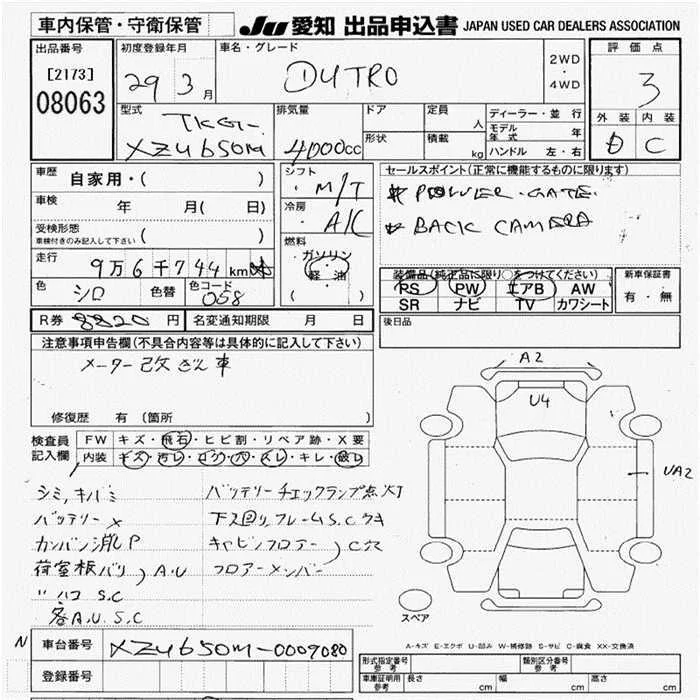 車内保管・守衛保管
JU 愛知 出品申込書 JAPAN USED CAR DEALERS ASSOCIATION
出品番号
[2173]
08063
初度登録年月
29 3月
車名・グレード
DUTRO
2WD
・
4WD
評価点
3
外装 内装
D C
型式
TKG-
XZU650M
排気量
4000cc
ドア
形状
定員 人
積載 kg
ディーラー・並行
モデル年式 年
ハンドル 左・右
車歴 自家用・( )
車検 年 月( 日)
受検形態
車検付きのみ記入して下さい ( )
走行 9万6千744km
色 シロ 色替 色コード 058
シフト
M/T
冷房
A/C
燃料
ガソリン
・
軽油
( )
セールスポイント(正常に機能するものに限ります)
* POWER.GATE.
* BACK CAMERA
装備品(純正品に限り○をつけてください)
PS PW エアB AW
SR ナビ TV カワシート
新車保証書
有・無
R券 8820円 名変通知期限 月 日
後日品
注意事項申告欄(不具合内容等は具体的に記入して下さい)
メーター改ざん車
修復歴 有 (箇所 )
検査員記入欄
FW キズ・飛石・ヒビ割・リペア跡・X要
内装 キズ・汚レ・コゲ・穴・スレ・キレ・破レ
シミ,キバミ
バッテリーX
カンバン消しP
荷室板バリ,A.U
〃 ハコ S.C
各A.U.S.C
バッテリーチェックランプ点灯
下回り,フレームS.Cサキ
キャビンフロアー,C穴
フロアーメンバー
A2
U4
UA2
スペア
A-キズ E-エクボ U-凹み W-補修跡 S-サビ C-腐食 XX-交換済
N
車台番号 XZU650M-0009080
登録番号
形式指定番号 参考
類別区分番号 参考
車庫証明用 参考 長さ cm 幅 cm 高さ cm